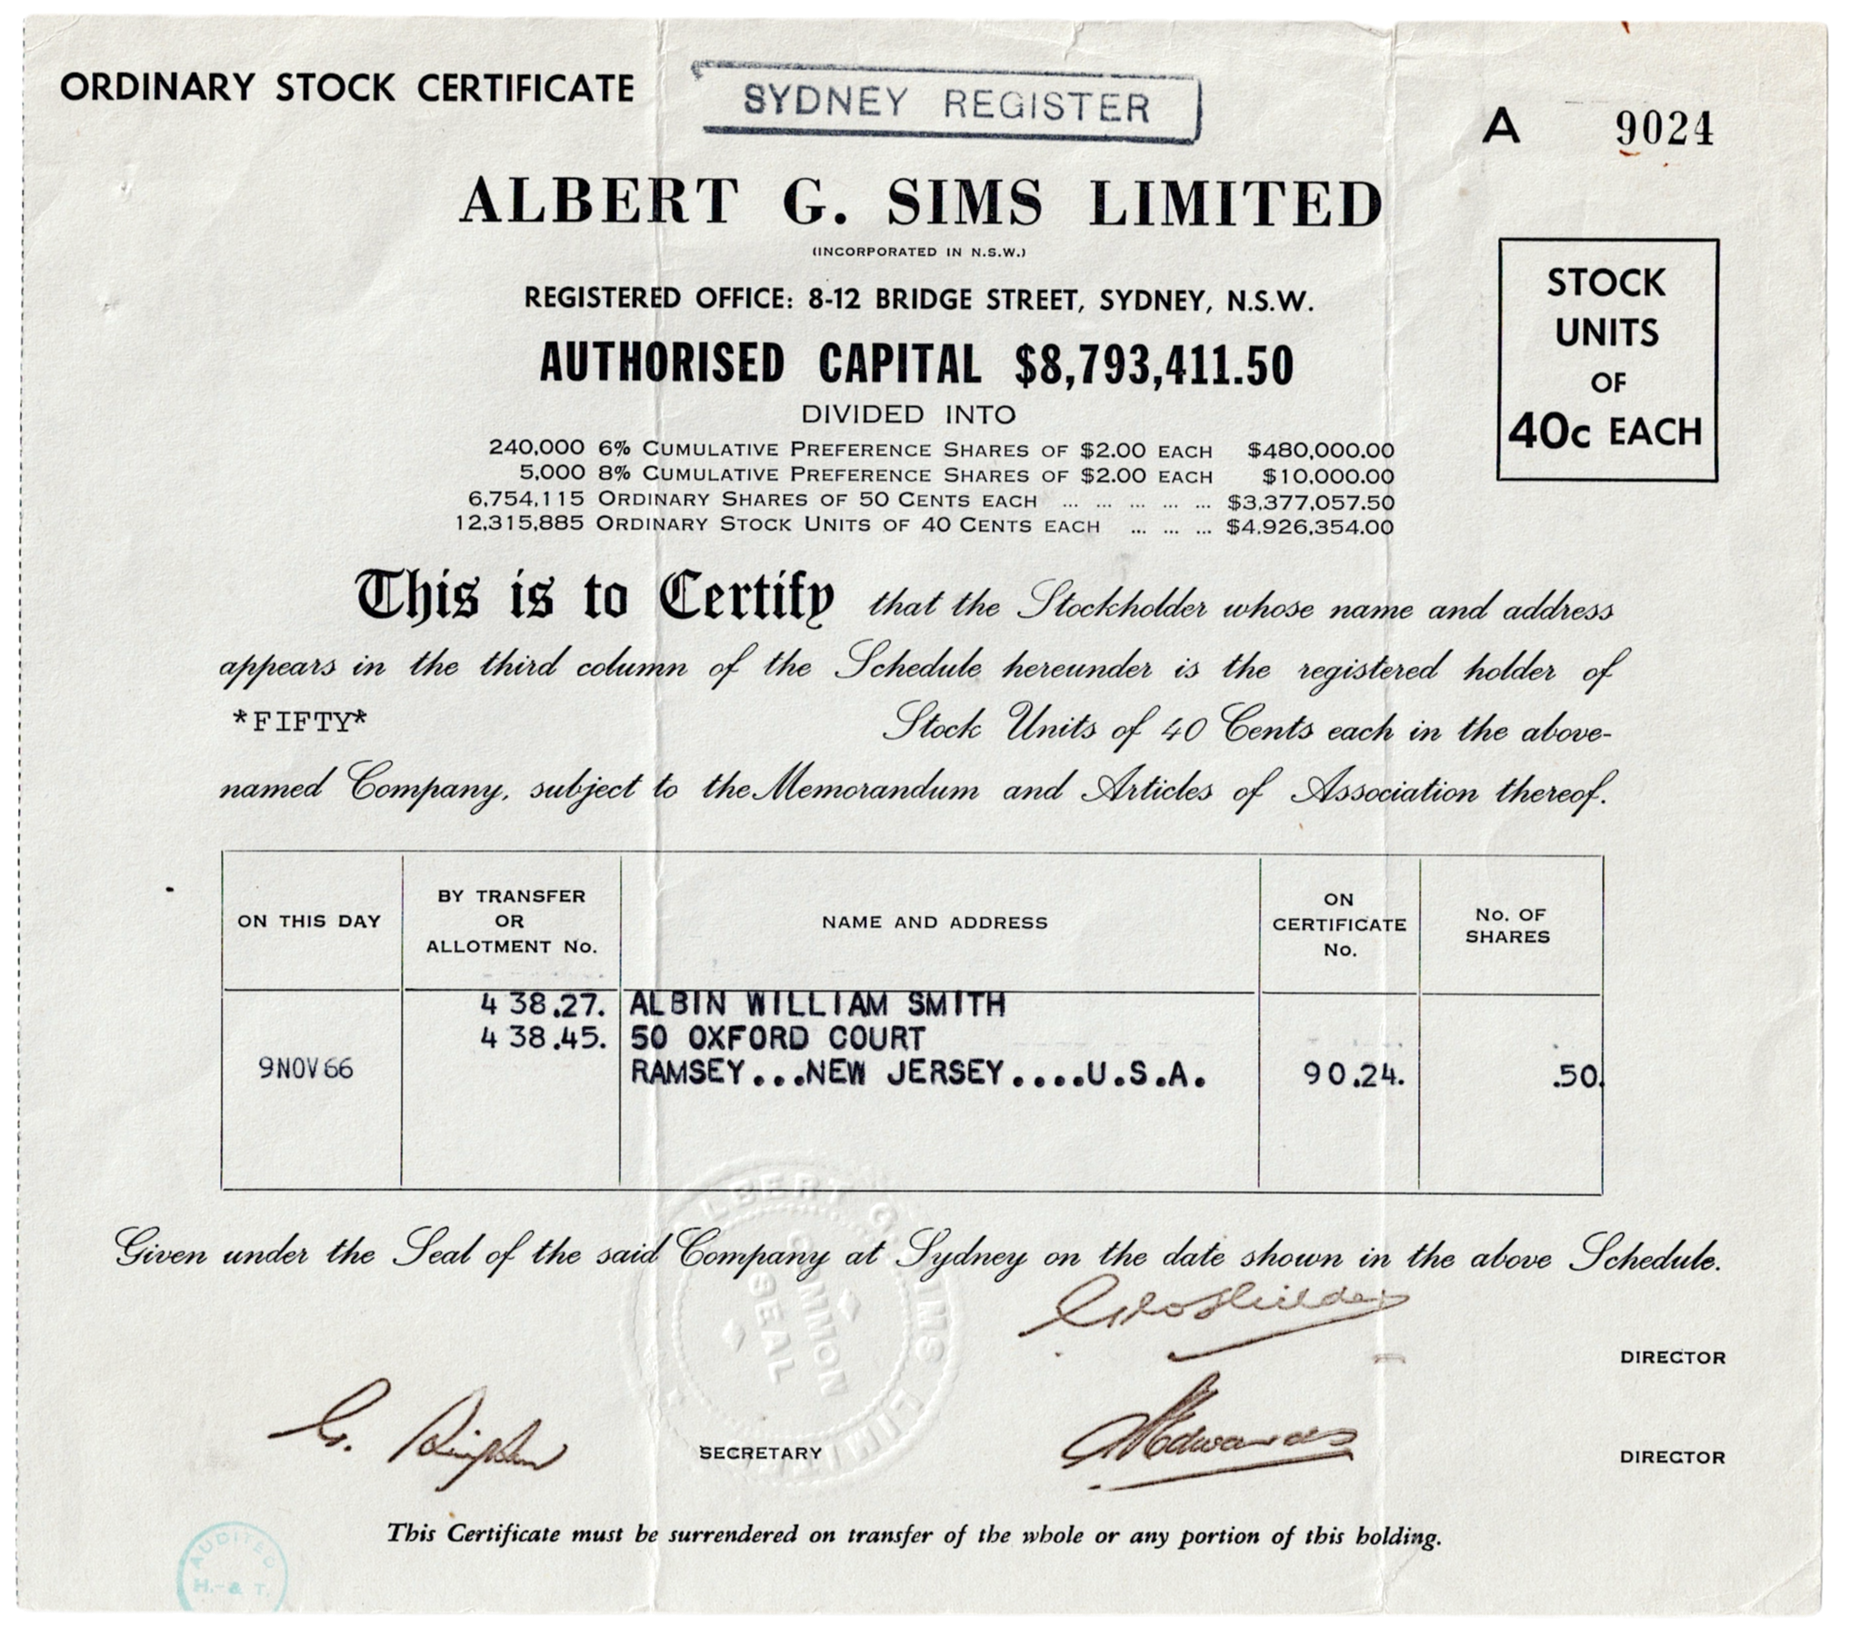 ORDINARY STOCK CERTIFICATE
SYDNEY REGISTER
A 9024
ALBERT G. SIMS LIMITED
(INCORPORATED IN N.S.W.)
REGISTERED OFFICE: 8-12 BRIDGE STREET, SYDNEY, N.S.W.
AUTHORISED CAPITAL $8,793,411.50
DIVIDED INTO
240,000 6% CUMULATIVE PREFERENCE SHARES OF $2.00 EACH $480,000.00
5,000 8% CUMULATIVE PREFERENCE SHARES OF $2.00 EACH $10,000.00
6,754,115 ORDINARY SHARES OF 50 CENTS EACH ... ... ... ... ... $3,377,057.50
12,315,885 ORDINARY STOCK UNITS OF 40 CENTS EACH ... ... ... $4,926,354.00
STOCK
UNITS
OF
40c EACH
This is to Certify that the Stockholder whose name and address
appears in the third column of the Schedule hereunder is the registered holder of
*FIFTY* Stock Units of 40 Cents each in the above-
named Company, subject to the Memorandum and Articles of Association thereof.
ON THIS DAY
BY TRANSFER
OR
ALLOTMENT No.
NAME AND ADDRESS
ON
CERTIFICATE
No.
No. OF
SHARES
4 38.27. ALBIN WILLIAM SMITH
4 38.45. 50 OXFORD COURT
9 NOV 66 RAMSEY...NEW JERSEY....U.S.A. 90.24. .50.
Given under the Seal of the said Company at Sydney on the date shown in the above Schedule.
ALBERT G. SIMS LIMITED
COMMON
SEAL
DIRECTOR
SECRETARY
Edwards
DIRECTOR
This Certificate must be surrendered on transfer of the whole or any portion of this holding.
AUDITED
H. & T.